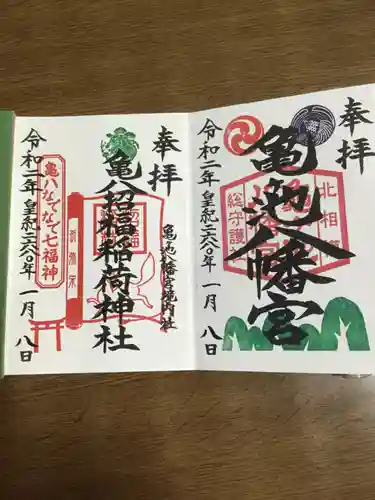 奉拝
亀池八幡宮
北相
総守護神
令和二年 皇紀二六八〇年 一月 八日
奉拝
亀ヶ池八幡宮境内社
亀八招福稲荷神社
亀八なでなで七福神
令和二年 皇紀二六八〇年 一月 八日